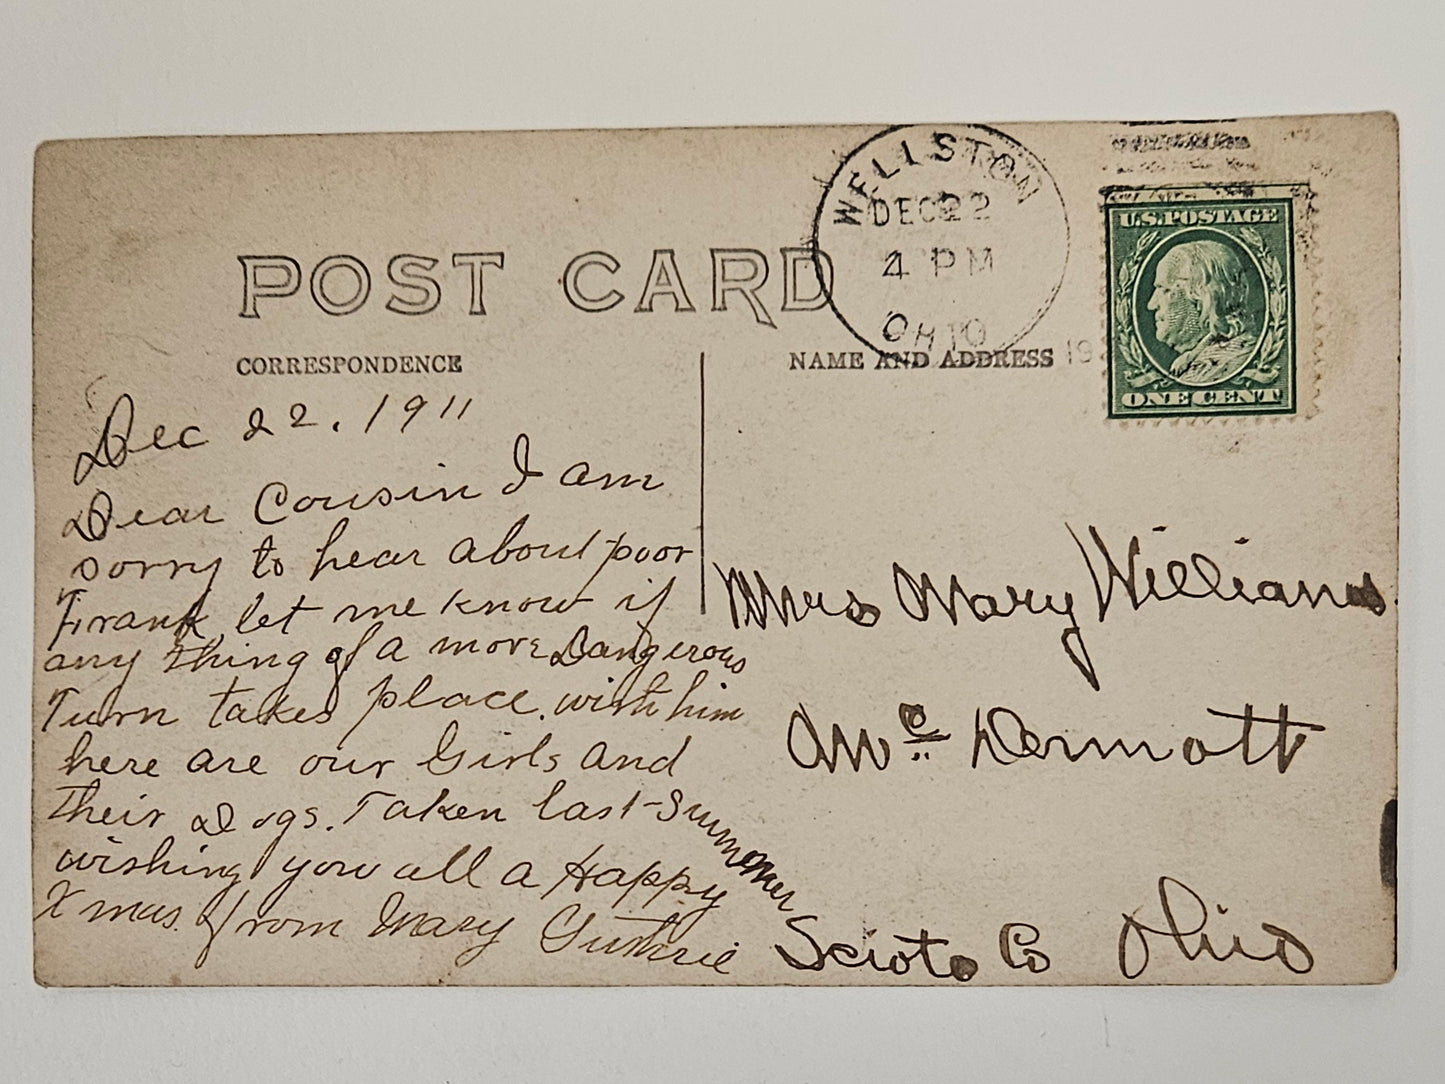 POST CARD
CORRESPONDENCE
NAME AND ADDRESS
WELLSTON
DEC 22
4 PM
OHIO
19
U.S. POSTAGE
ONE CENT
Dec 22. 1911
Dear Cousin I am
sorry to hear about poor
Frank, let me know if
any thing of a more Dangerous
Turn takes place. with him
here are our Girls and
their Dogs. Taken last Summer
wishing you all a Happy
Xmas. from Mary Guthrie
Mrs Mary Williams
Mc Dermott
Scioto Co Ohio